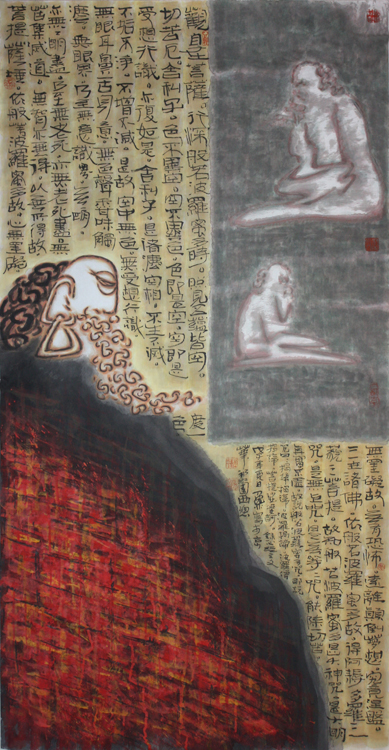 觀自在菩薩。行深般若波羅蜜多時。照見五蘊皆空。度一
切苦厄。舍利子。色不異空。空不異色。色即是空。空即是色
受想行識。亦復如是。舍利子。是諸法空相。不生不滅。
不垢不淨。不增不減。是故空中無色。無受想行識。
無眼耳鼻舌身意。無色聲香味觸
法。無眼界。乃至無意識界。無無明
亦無無明盡。乃至無老死。亦無老死盡。無
苦集滅道。無智亦無得。以無所得故
菩提薩埵。依般若波羅蜜多故。心無罣礙
無罣礙故。無有恐怖。遠離顛倒夢想。究竟涅槃。
三世諸佛。依般若波羅蜜多故。得阿耨多羅三
藐三菩提。故知般若波羅蜜多。是大神咒。是大明
咒。是無上咒。是無等等咒。能除一切苦。
真實不虛。故說般若波羅蜜多咒。即說